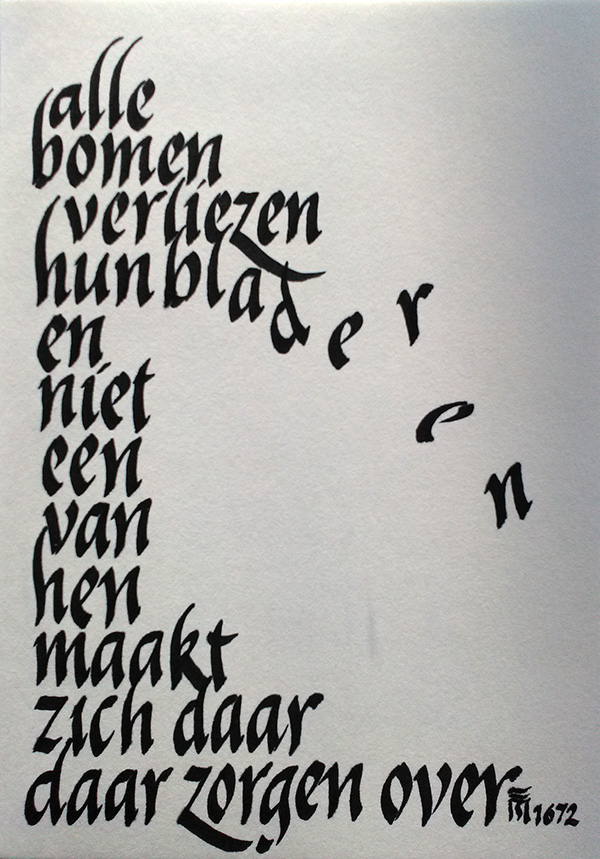 alle
bomen
verliezen
hun bladeren
en
niet
een
van
hen
maakt
zich daar
daar zorgen over
1672